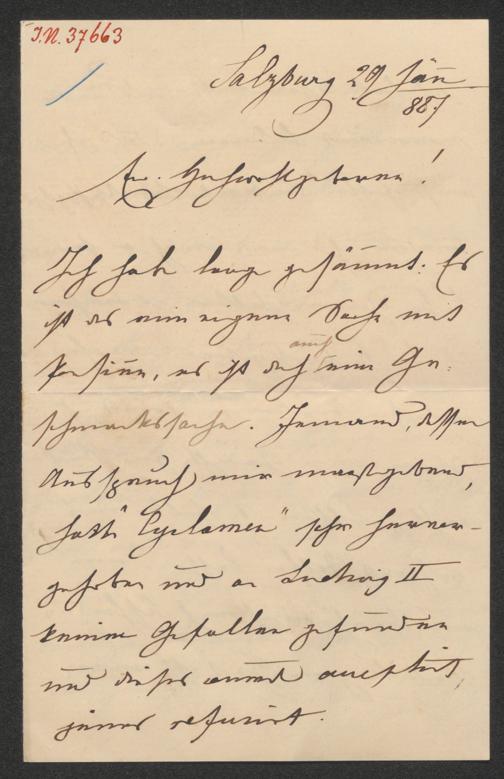 I.N. 37663
Salzburg 29 Jän
887
Ew. Hochwohlgeboren!
Ich habe lange gesäumt. Es
ist das eine eigene Sache mit
Poesieen, es ist doch auch eine Ge-
schmackssache. Jemand, dessen
Ausspruch mir maßgebend,
hatte "Cyclamen" sehr hervor-
gehoben und an Ludwig II
keinen Gefallen gefunden
und dieses wurde acceptirt,
jenes refusirt.